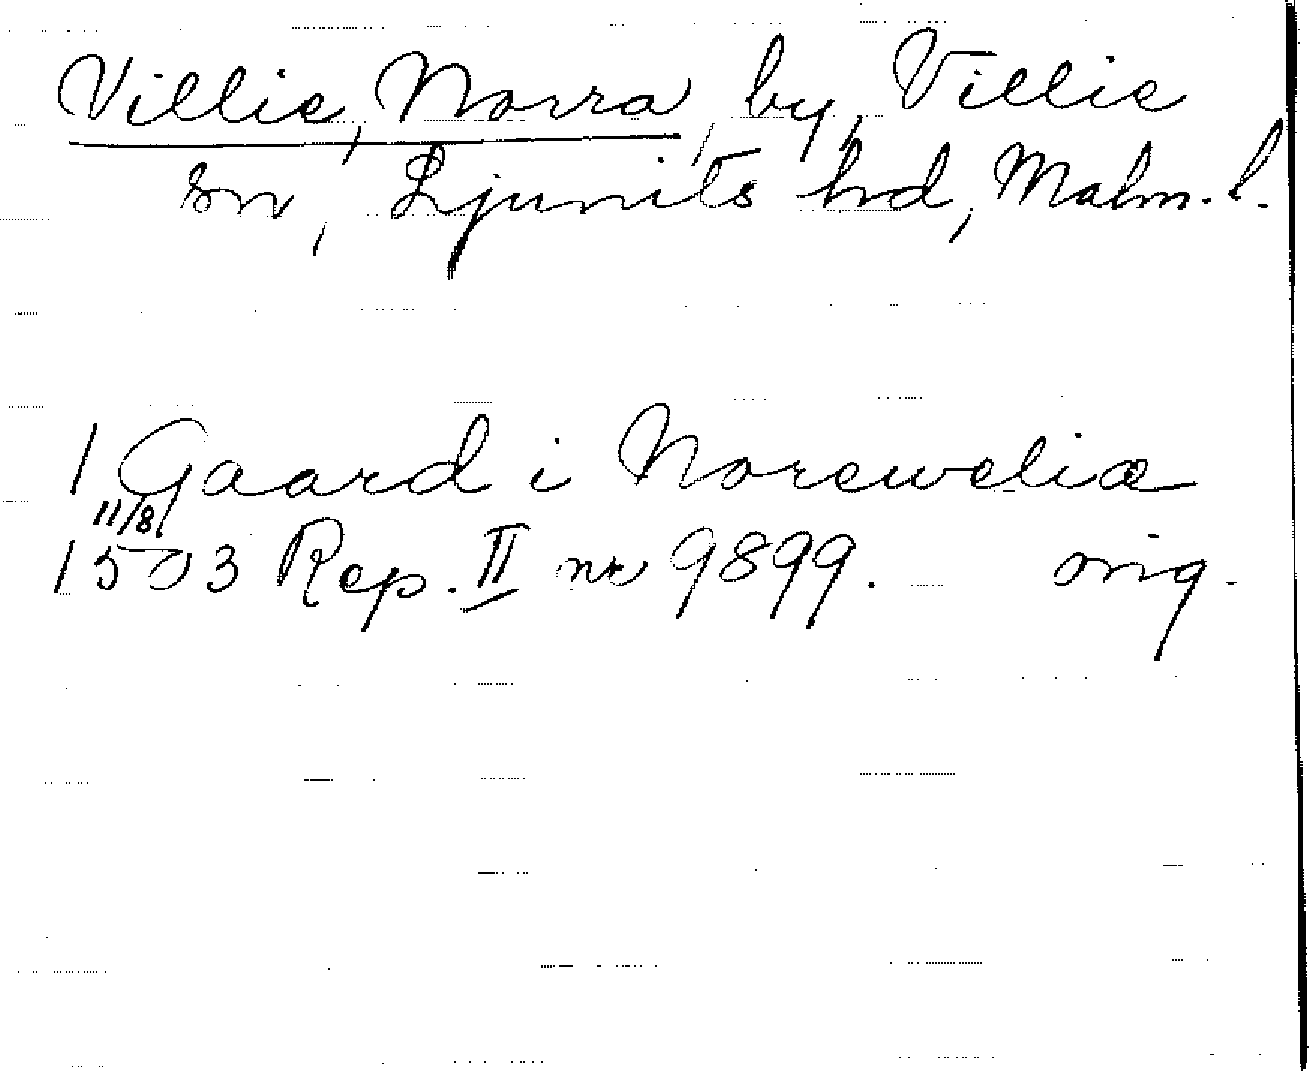 Villie, Norra, by, Villie
sn, Ljunits hd, Malm. l.
1 Gaard i Noreweliæ
11/8
1503 Rep. II nr 9899. orig.